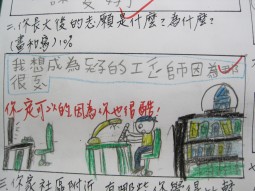 二、你長大後的志願是什麼？為什麼？
(畫和寫)10%
我想成為的工師因為
很
你一定可以的因為你也很酷！
三、你家社區附近，有哪些